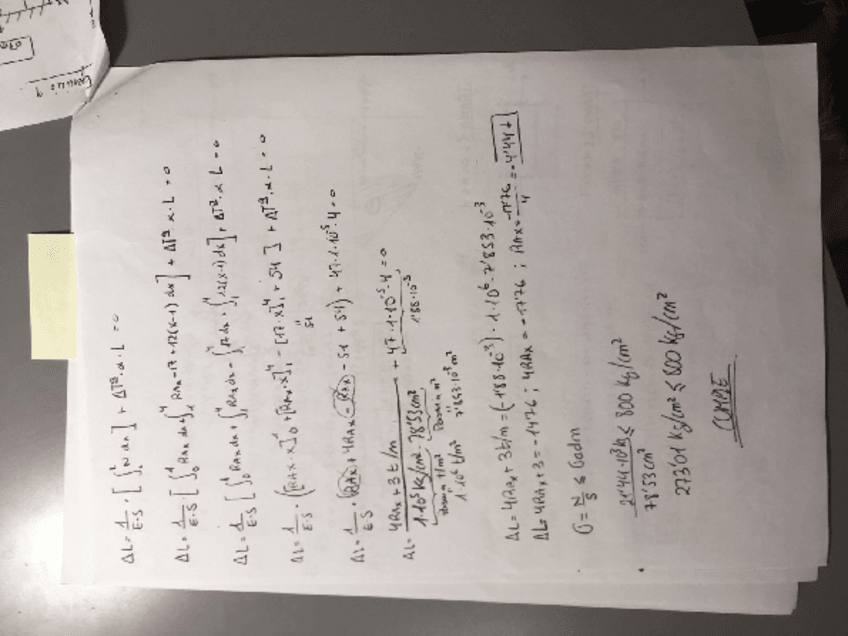 ΔL = 1/E·S · [∫₀ᴸ N dx] + ΔTª·α·L = 0
ΔL = 1/E·S [∫₀¹ RAx dx + ∫₁⁴ RAx - 17 + 12(x-1) dx] + ΔTª·α·L = 0
ΔL = 1/E·S [∫₀¹ RAx dx + ∫₁⁴ RAx dx - ∫₁⁴ 17 dx + ∫₁⁴ 12(x-1) dx] + ΔTª·α·L = 0
ΔL = 1/E·S · ([RAx·x]¹₀ + [RAx·x]⁴₁ - [17·x]⁴₁ + 54] + ΔTª·α·L = 0
51
ΔL = 1/E·S · (RAx + 4RAx - RAx - 51 + 54) + 47·1·10⁻⁵·4 = 0
ΔL = 4RAx + 3 t/m / 1·10⁵ Kg/cm² · 78'53 cm² + 47·1·10⁻⁵·4 = 0
1'88·10⁻³
t/m²
1·10⁶ t/m² 7'853·10⁻³ m²
ΔL = 4RAx + 3t/m = (-1'88·10⁻³)·1·10⁶·7'853·10⁻³
ΔL = 4RAx + 3 = -14'76 ; 4RAx = -17'76 ; RAx = -17'76/4 = -4'44 t
σ = N/S ≤ σadm
21'44·10³ kg / 78'53 cm² ≤ 800 Kg/cm²
273'01 Kg/cm² ≤ 800 Kg/cm²
CUMPLE